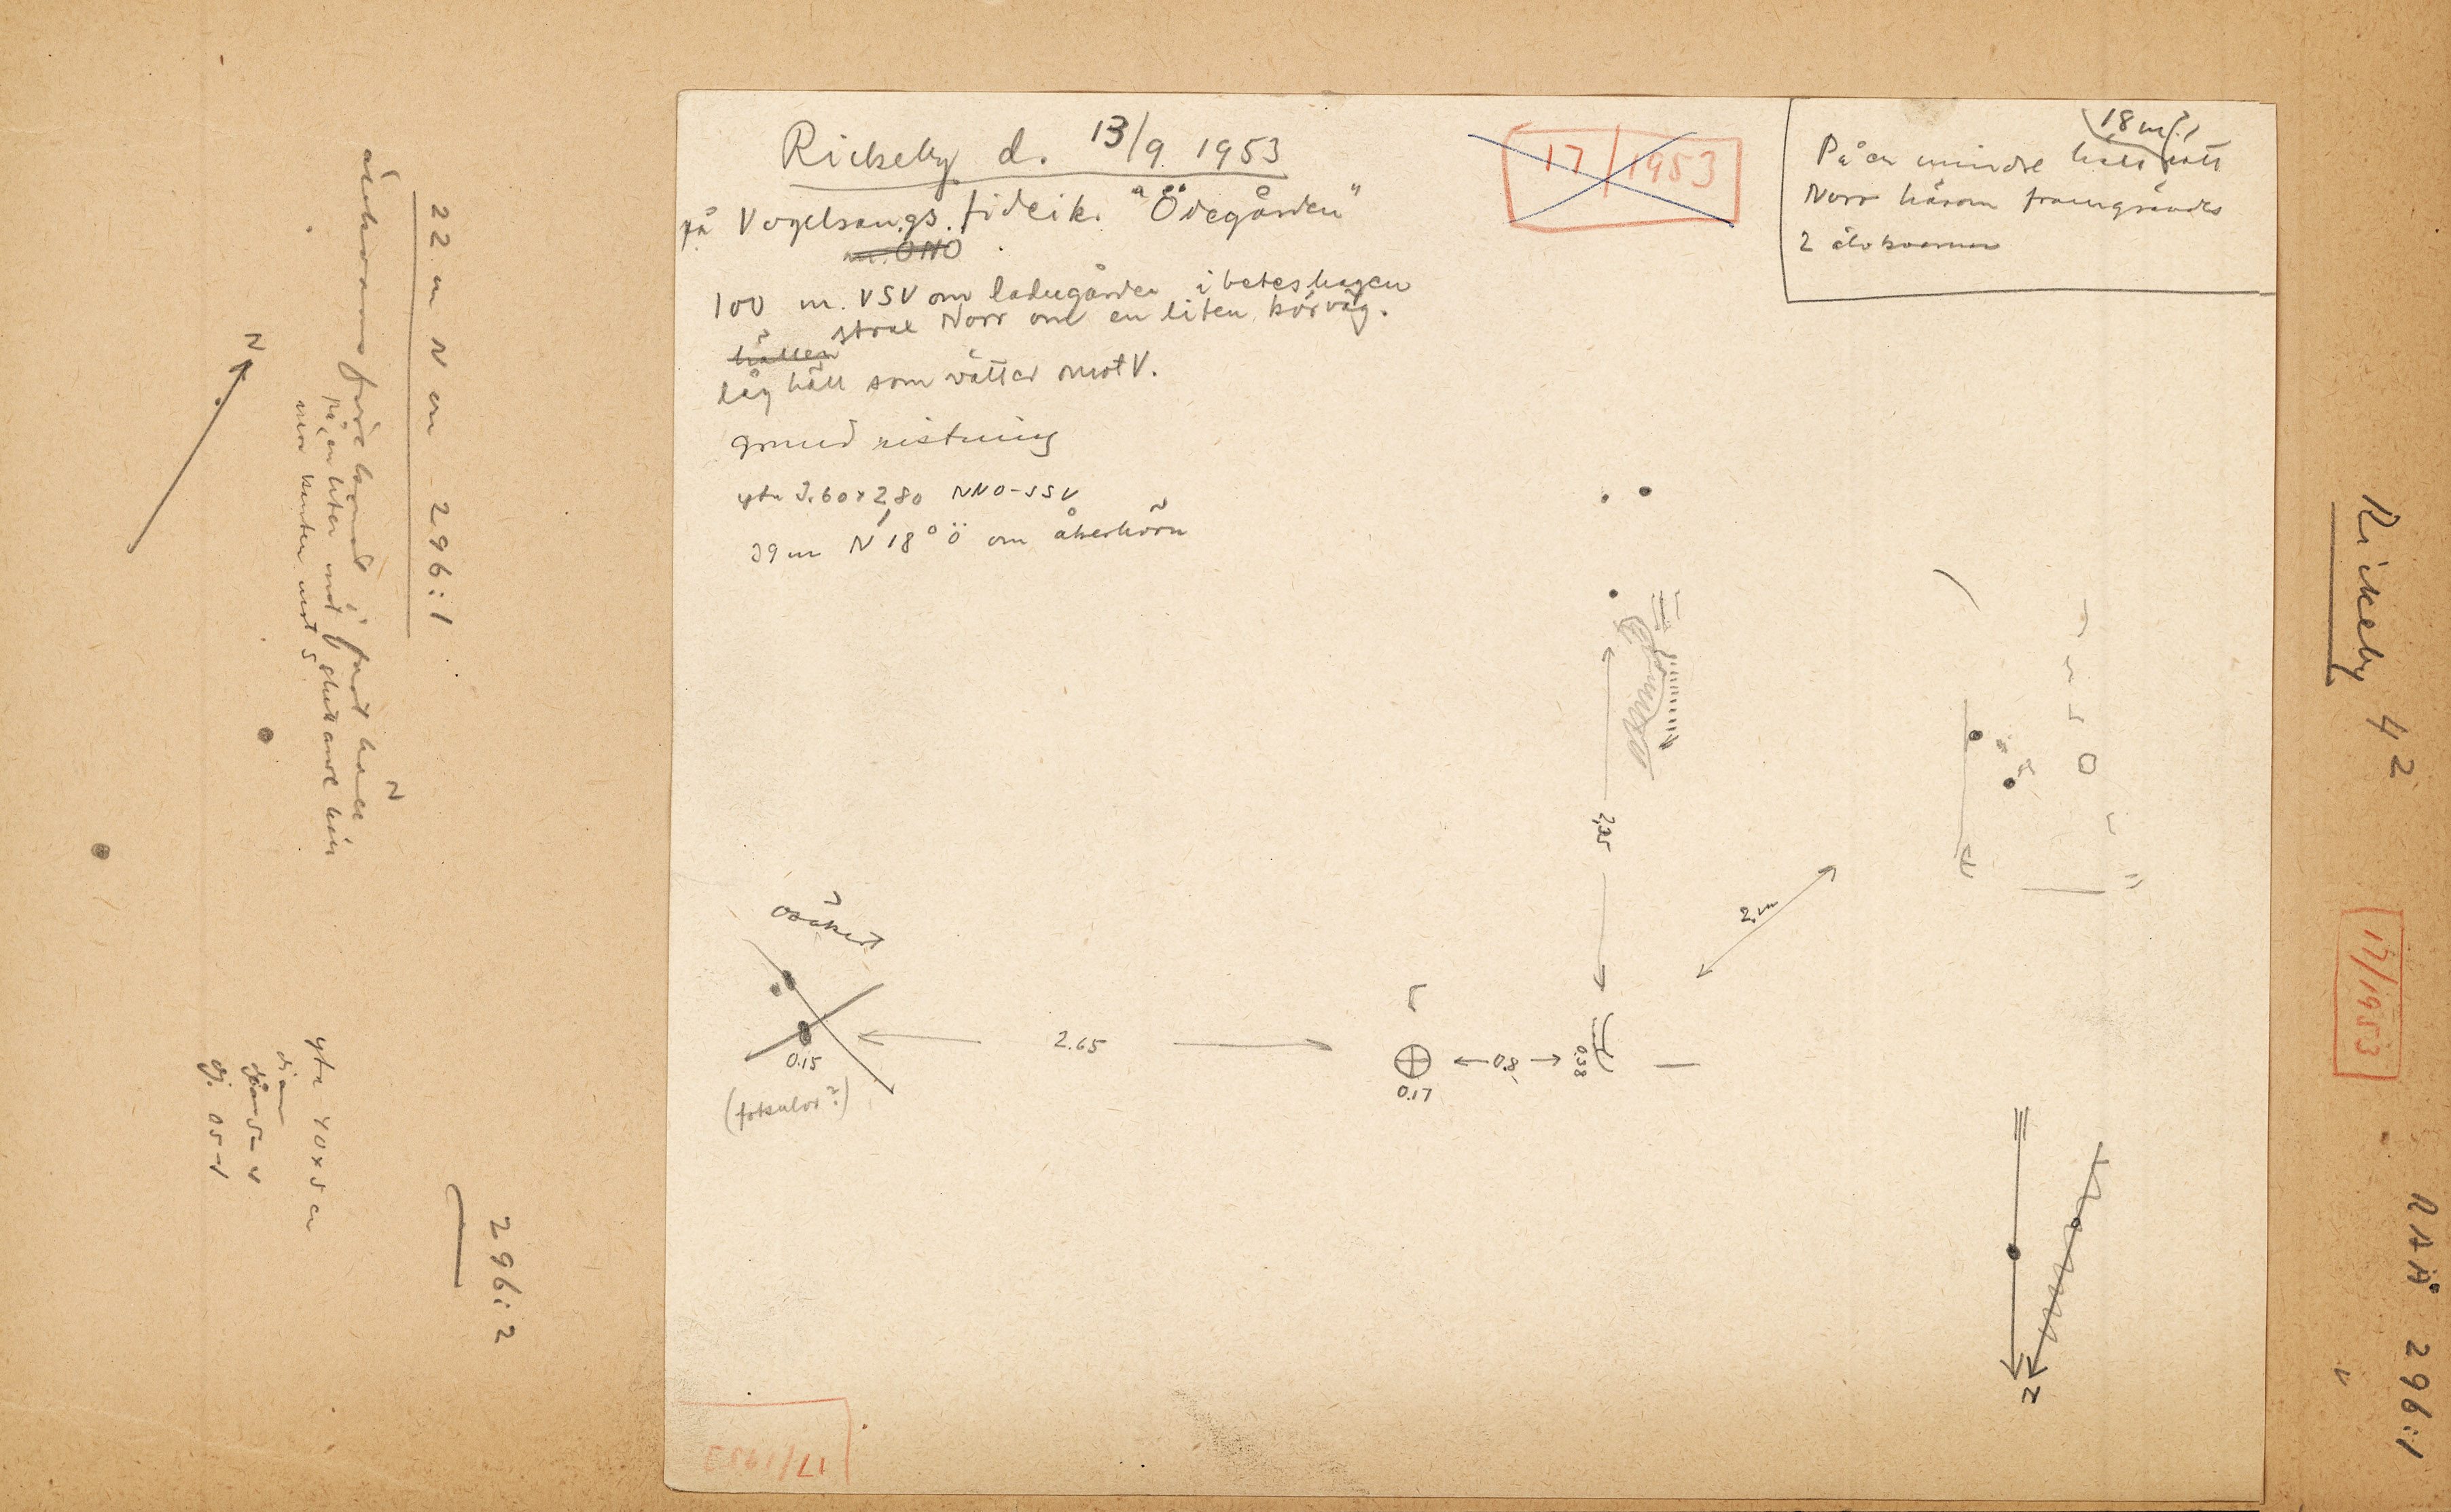 Rickeby d. 13/9 1953
på Vogelsangs fideik. "Ödegården"
m. ONO
100 m. VSV om ladugården i beteshagen
strax Norr om en liten körväg.
hällen
låg häll som vätter mot V.
grund ristning
yta 3.60x2,80 NNO-SSV
39 m N 18° Ö om åkerhörn
17/1953
18 m?
På en mindre häll rätt
Norr härom framgrävdes
2 älvkvarnar
2,25
2.m
osäkert
0.15
(fotsulor?)
2.65
0.17
0.8
0.38
N
17/1953
Rickeby 42
17/1953
RAÄ 296:1
22 m N om 296:1
älvkvarnsförekomst i fast häll
på en liten mot S sluttande häll
nära kanten mot S
N
296:2
yta 40x5 cm
diam
5-4
dj. 05-1